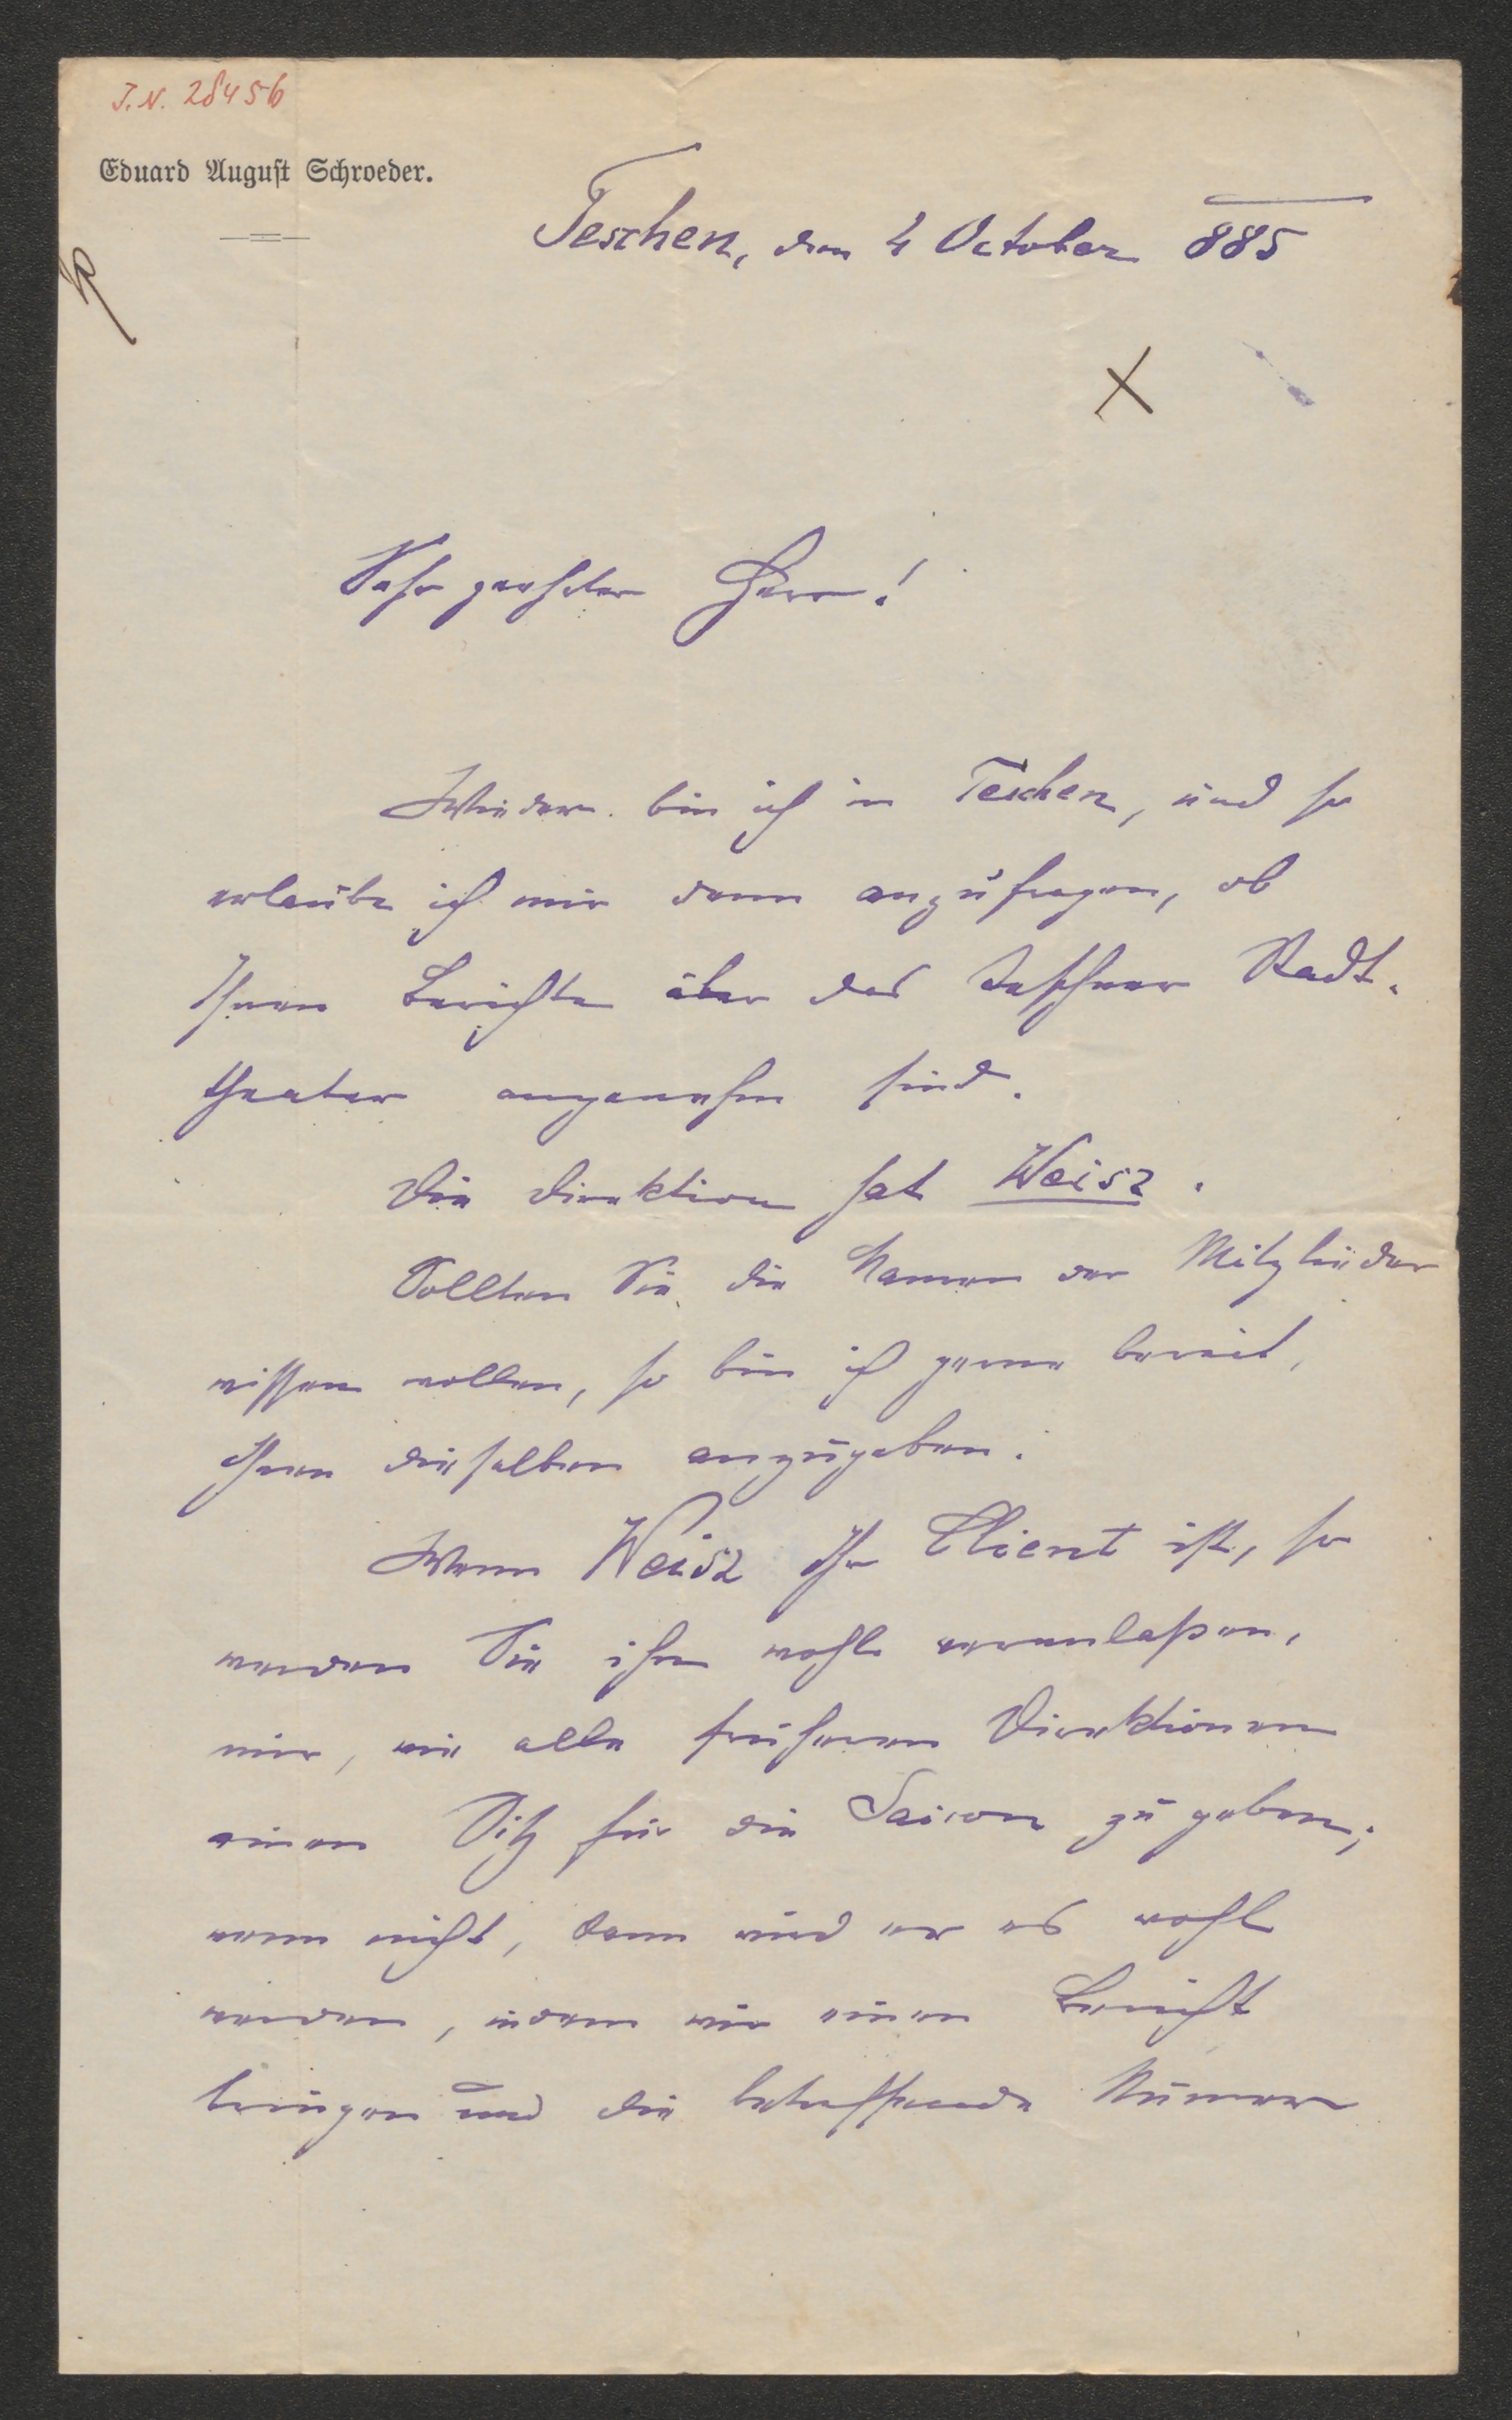 J.N. 28456
Eduard August Schroeder.
Teschen, den 4 October 885
Sehr geehrter Herr!
Wieder bin ich in Teschen, und so
erlaube ich mir denn anzufragen, ob
Ihnen Berichte über das Teschner Stadt-
theater angenehm sind.
Die Direktion hat Weisz.
Sollten Sie die Namen der Mitglieder
wissen wollen, so bin ich gerne bereit,
Ihnen dieselben anzugeben.
Wenn Weisz Ihr Client ist, so
werden Sie ihn wohl veranlaßen,
mir, wie alle früheren Direktionen
einen Sitz für die Saison zu geben;
wenn nicht, dann wird er es wohl
werden, indem wir einen Bericht
bringen und die betreffende Numer